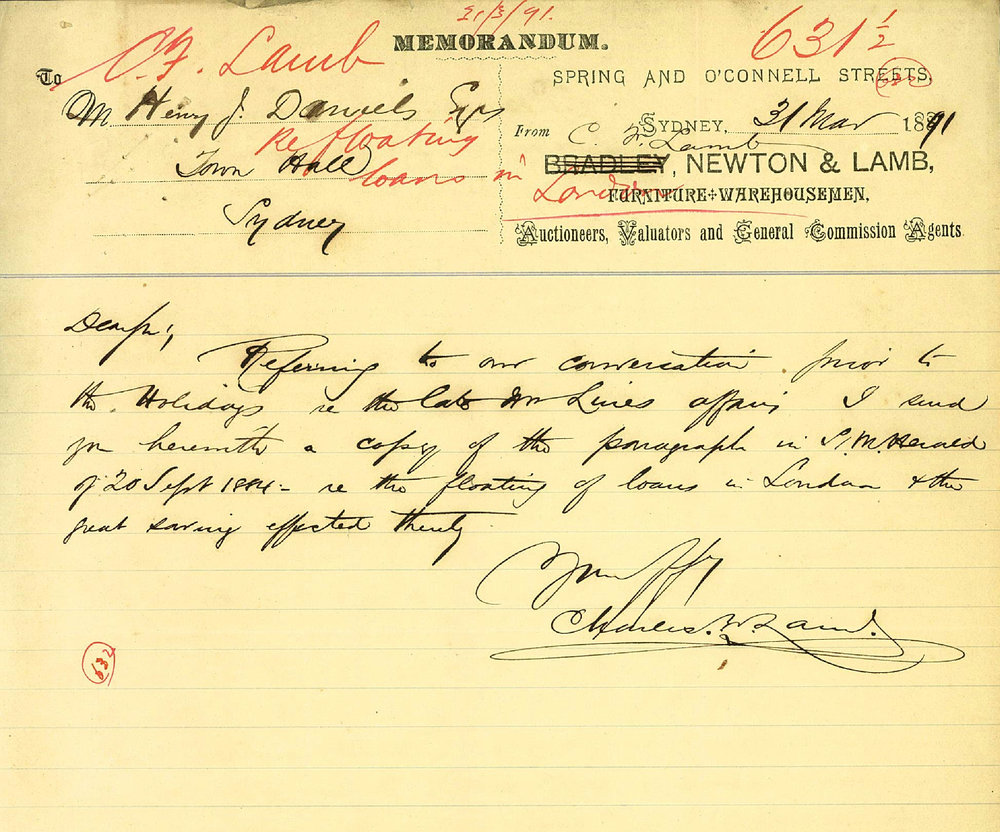 31/3/91.
MEMORANDUM.
631 1/2
C. F. Lamb
To
SPRING AND O'CONNELL STREETS,
M Henry J. Daniels Esq
SYDNEY, 31 Mar 1891
Re floating
From C. F. Lamb
Town Hall
loans in
BRADLEY, NEWTON & LAMB,
London
FURNITURE WAREHOUSEMEN,
Sydney
Auctioneers, Valuators and General Commission Agents
Dear Sir,
Referring to our conversation prior to
the Holidays re the late Mr Lines affairs I send
you herewith a copy of the paragraph in S. M. Herald
of 20 Sept 1884 - re the floating of loans in London & the
great saving effected thereby
Yours ffy
Charles. F. Lamb.
632